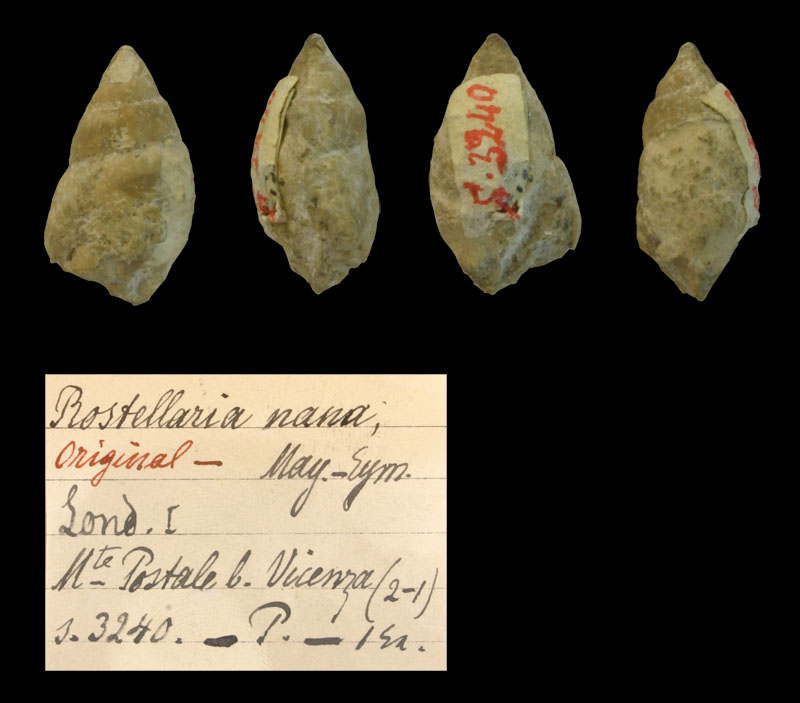 S. 3240
Rostellaria nana,
Original – May.-Eym.
Lond. I
Mte Postale b. Vicenza (2-1)
s. 3240. – P. – 1 Ex.